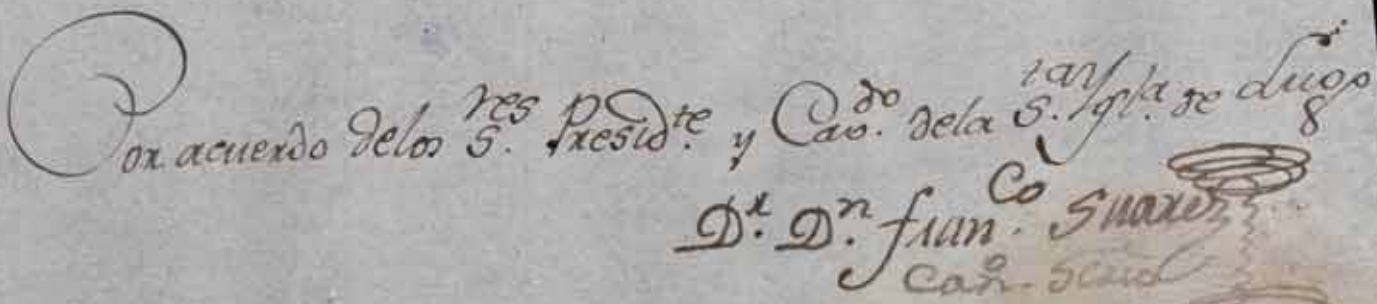 Por acuerdo delos S.res Presid.te y Cav.do dela S.ta Ygl.a de Lugo
D.r D.n Fran.co Suarez
Can.o Scrio